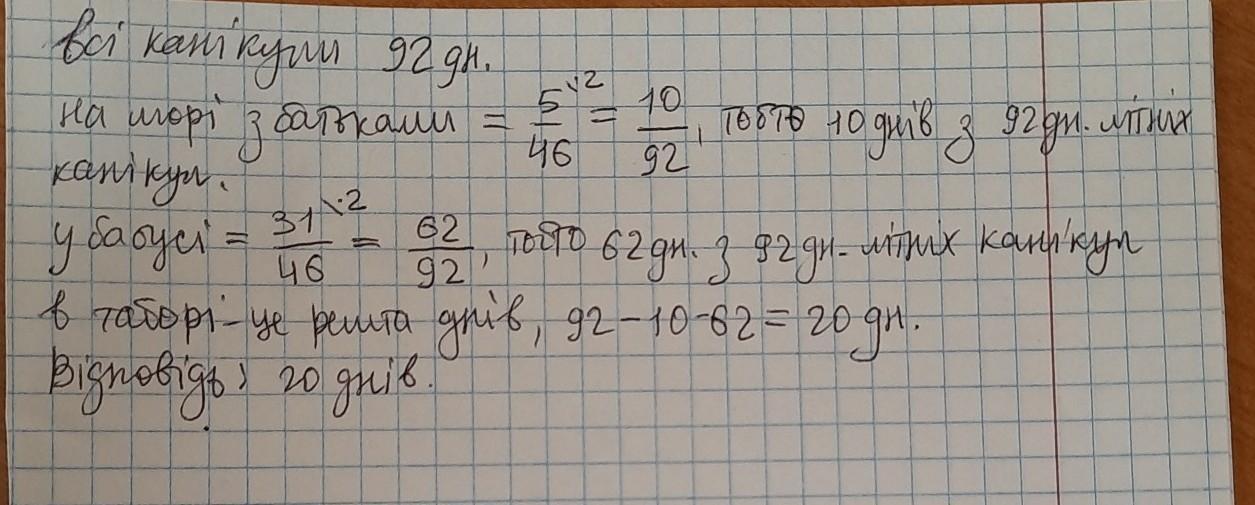 Всі канікули 92 дн.
на морі з батьками = 5\·2/46 = 10/92, тобто 10 днів з 92 дн. літніх
канікул.
у бабусі = 31\·2/46 = 62/92, тобто 62 дн. з 92 дн. літніх канікул
в таборі - це решта днів, 92 - 10 - 62 = 20 дн.
Відповідь: 20 днів.